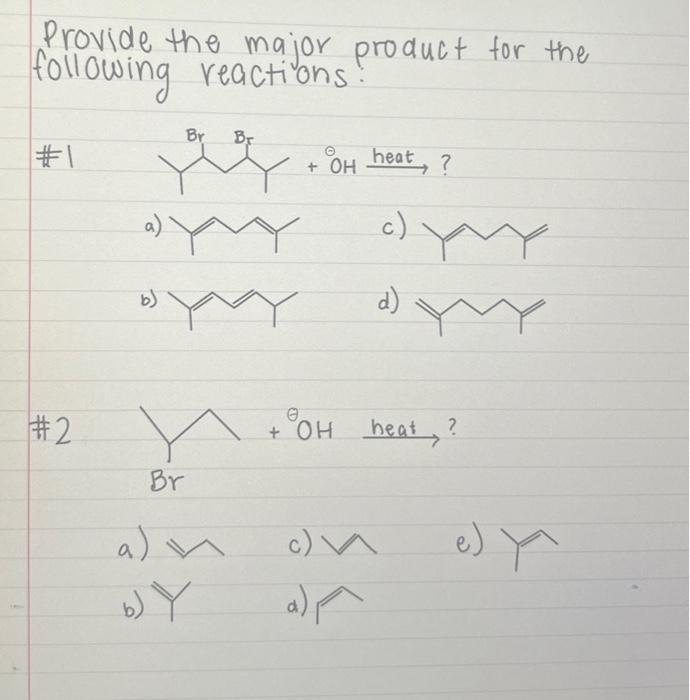 Provide the major product for the
following reactions:
#1
Br Br
+ ⊖OH heat → ?
a) c)
b) d)
#2
+ ⊖OH heat → ?
Br
a) c) e)
b) d)